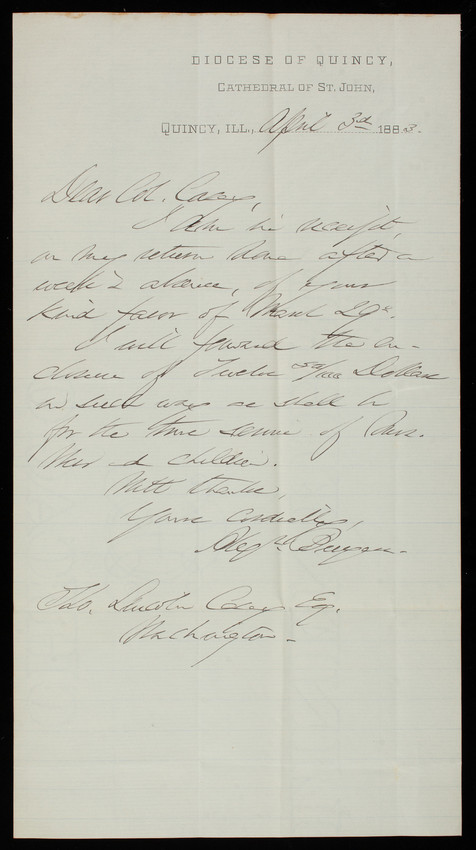 DIOCESE OF QUINCY,
CATHEDRAL OF ST. JOHN,
QUINCY, ILL., April 3d 1883.
Dear Col. Casey,
I am in receipt,
on my return home after a
week's absence, of your
kind favor of March 29th.
I will forward the en-
closure of Twelve 50/100 Dollars
in such way as shall be
for the true service of
and children.
With thanks,
Yours cordially,
Alexr. Burgess.
Tho. Lincoln Casey Esq.
Washington.